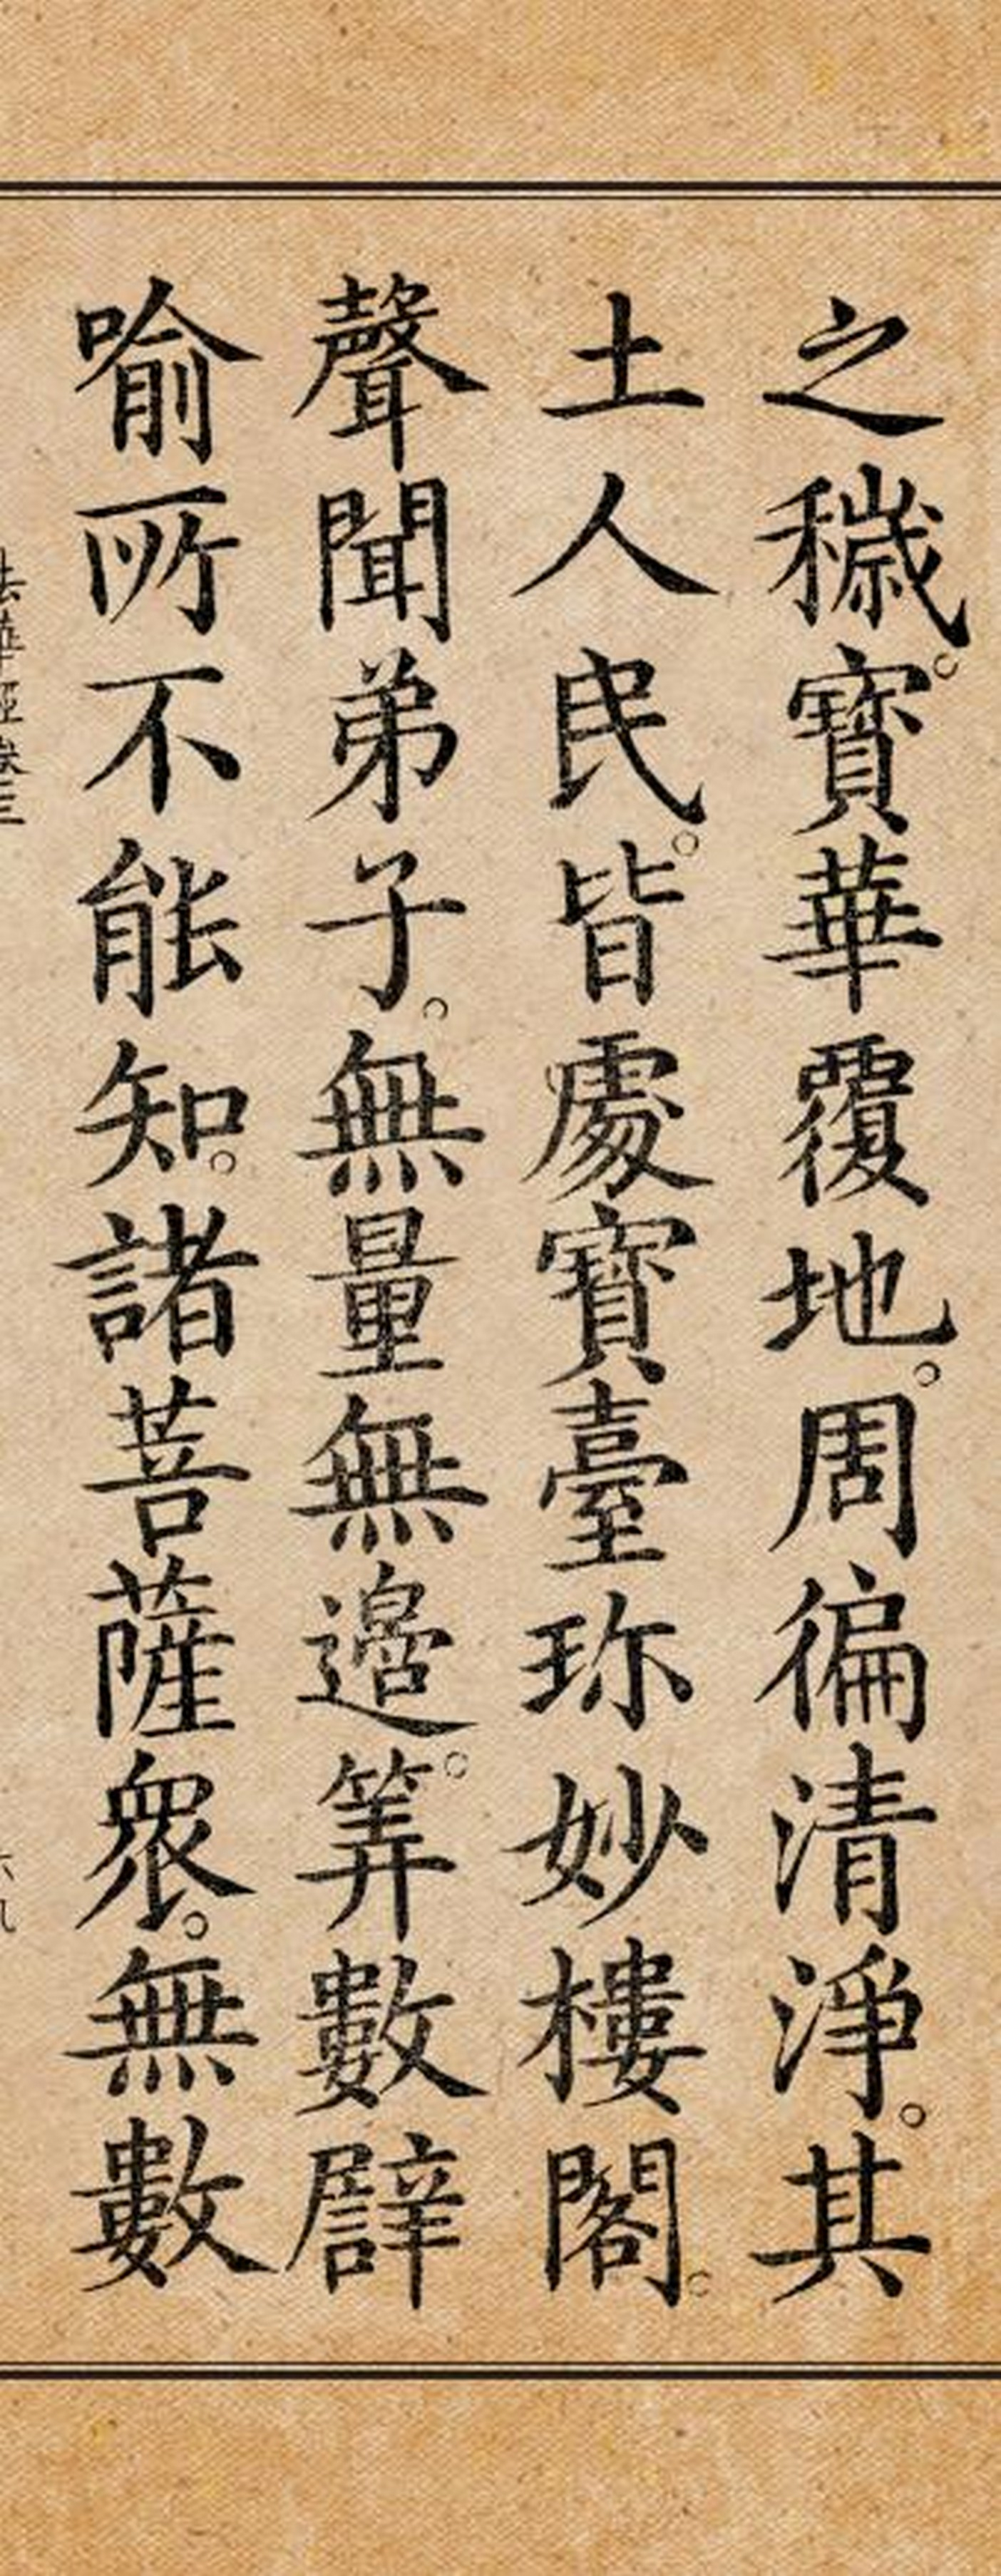 之穢。寶華覆地。周徧清淨。其
土人民。皆處寶臺珎妙樓閣。
聲聞弟子。無量無邉。筭數譬
喻所不能知。諸菩薩衆。無數
法華經卷三
六九